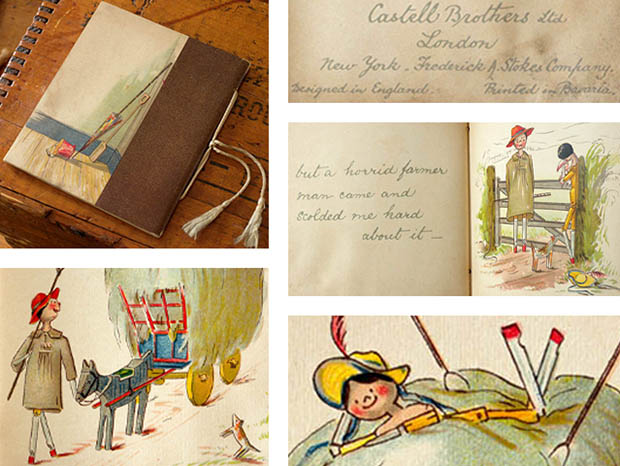 Castell Brothers Ltd
London
New York. Frederick A Stokes Company.
Designed in England. Printed in Bavaria.
but a horrid farmer
man came and
scolded me hard
about it —